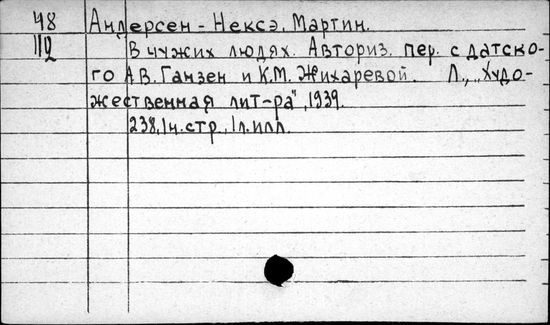 48 Андерсен-Нексэ, Мартин.
112 В чужих людях. Авториз. пер. с датско-
го А.В. Ганзен и К.М. Жихаревой. Л., „Худо-
жественная лит-ра", 1939.
238, 1н. стр., 1л. илл.